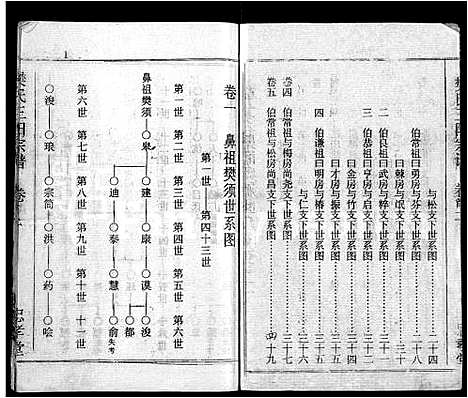 与松支下世系图 二十四
伯常祖曰勇房与芬支下世系图 二十八
曰棘房与氓支下世系图 二十九
伯良祖曰武房与粹支下世系图 三十
伯恭祖曰亨房与启支下世系图 三十一
曰金房与竹支下世系图 三十二
曰才房与振支下世系图 三十三
四 伯谦祖曰明房与椿支下世系图 三十五
与仁支下世系图 三十六
卷四 伯常祖与梅房尚尧支下世系图 三十七
卷五 伯常祖与松房尚昌支下世系图 四十九
卷一 鼻祖樊须世系图
第一世——第四十三世
第一世 第二世 第三世 第四世 第五世 第六世
鼻祖樊须 皋 建 康 谟 浚
都
迪 泰 慧 俞 失考
第六世 第七世 第八世 第九世 第十世 十一世
浚 琅 宗简 洪 药 哙
樊氏三阳宗谱 卷首
忠孝堂